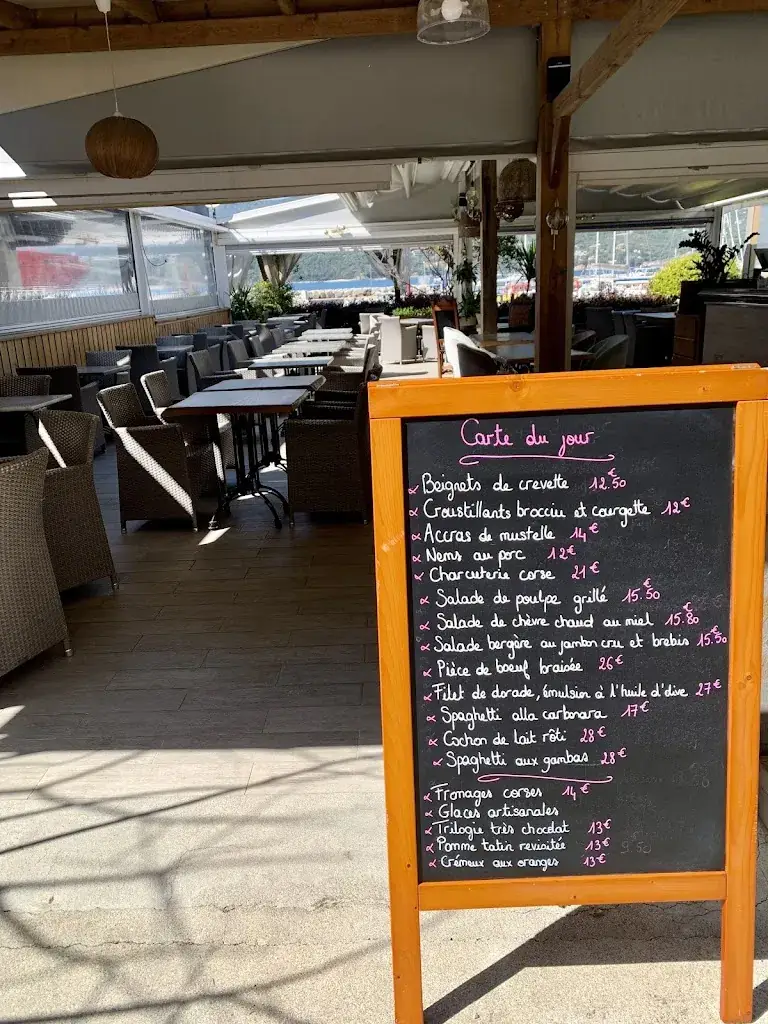 Carte du jour
Beignets de crevette 12.50€
Croustillants brocciu et courgette 12€
Accras de mustelle 14€
Nems au porc 12€
Charcuterie corse 21€
Salade de poulpe grillé 15.50€
Salade de chèvre chaud au miel 15.80€
Salade bergère au jambon cru et brebis 15.50€
Pièce de boeuf braisée 26€
Filet de dorade, émulsion à l'huile d'olive 27€
Spaghetti alla carbonara 17€
Cochon de lait rôti 28€
Spaghetti aux gambas 28€
Fromages corses 14€
Glaces artisanales
Trilogie très chocolat 13€
Pomme tatin revisitée 13€
Crémeux aux oranges 13€